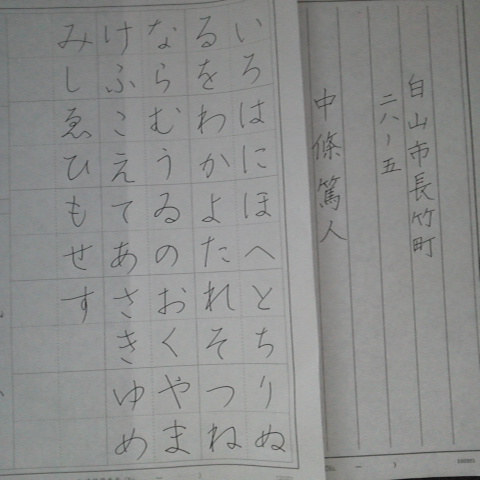 白山市長竹町
二八ー五
中條篤人
いろはにほへとちりぬ
るをわかよたれそつね
ならむうゐのおくやま
けふこえてあさきゆめ
みしゑひもせす